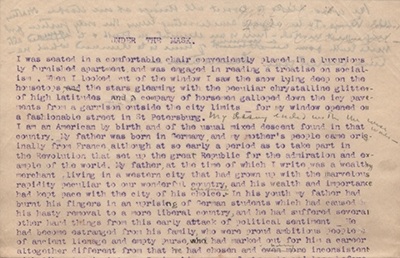 UNDER THE MASK.
I was seated in a comfortable chair conveniently placed in a luxurious
ly furnished apartment and was engaged in reading a treatise on social-
ism . When I looked out of the window I saw the snow lying deep on the
housetops and the stars gleaming with the peculiar chrystalline glitter
of high latitudes and a company of horsemen galloped down the icy pave
ments from a garrison outside the city limits for my window opened on
a fashionable street in St Petersburg. My
I am an American by birth and of the usual mixed descent found in that
country. My father was born in Germany and my mother's people came orig
inally from France although at so early a period as to take part in
the Revolution that set up the great Republic for the admiration and ex-
ample of the world. My father, at the time of which I write was a wealthy
merchant ,living in a western city that had grown up with the marvelous
rapidity peculiar to our wonderful country, and his wealth and importance
had kept pace with the city of his choice. In his youth my father had
burnt his fingers in an uprising of German students which had caused
his hasty removal to a more liberal country, and he had suffered several
other hard things from this early attack of political sentiment. He
had become estranged from his family, who were proud ambitious people
of ancient lineage and empty purse, who had marked out for him a career
altogether different from that he had chosen and even more inconsistent